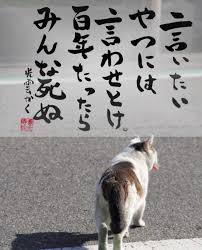 言いたい
やつには
言わせとけ。
百年たったら
みんな死ぬ